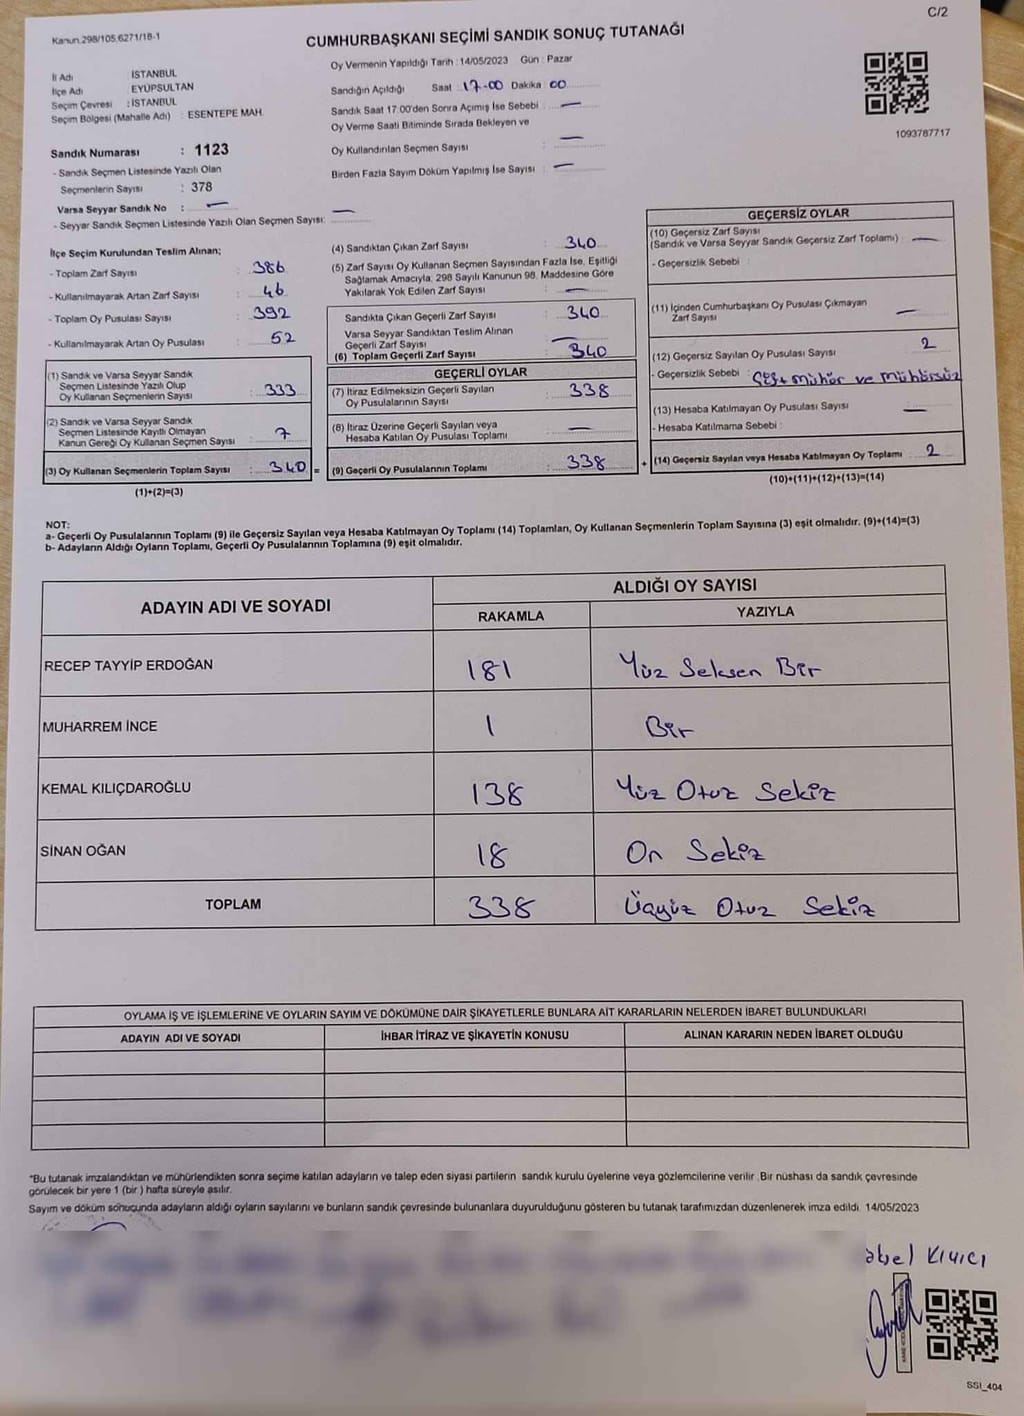 C/2
Kanun.298/105,6271/18-1
CUMHURBAŞKANI SEÇİMİ SANDIK SONUÇ TUTANAĞI
İl Adı : İSTANBUL
İlçe Adı : EYÜPSULTAN
Seçim Çevresi : İSTANBUL
Seçim Bölgesi (Mahalle Adı) : ESENTEPE MAH.
Oy Vermenin Yapıldığı Tarih : 14/05/2023 Gün : Pazar
Sandığın Açıldığı Saat : 17-00 Dakika : 00
Sandık Saat 17:00'den Sonra Açımış İse Sebebi : —
Oy Verme Saati Bitiminde Sırada Bekleyen ve
Oy Kullandırılan Seçmen Sayısı : —
Birden Fazla Sayım Döküm Yapılmış İse Sayısı : —
1093787717
Sandık Numarası : 1123
- Sandık Seçmen Listesinde Yazılı Olan
Seçmenlerin Sayısı : 378
Varsa Seyyar Sandık No : —
- Seyyar Sandık Seçmen Listesinde Yazılı Olan Seçmen Sayısı: —
İlçe Seçim Kurulundan Teslim Alınan;
- Toplam Zarf Sayısı : 386
- Kullanılmayarak Artan Zarf Sayısı : 46
- Toplam Oy Pusulası Sayısı : 392
- Kullanılmayarak Artan Oy Pusulası : 52
(1) Sandık ve Varsa Seyyar Sandık
Seçmen Listesinde Yazılı Olup
Oy Kullanan Seçmenlerin Sayısı : 333
(2) Sandık ve Varsa Seyyar Sandık
Seçmen Listesinde Kayıtlı Olmayan
Kanun Gereği Oy Kullanan Seçmen Sayısı : 7
(3) Oy Kullanan Seçmenlerin Toplam Sayısı : 340 =
(1)+(2)=(3)
(4) Sandıktan Çıkan Zarf Sayısı : 340
(5) Zarf Sayısı Oy Kullanan Seçmen Sayısından Fazla İse, Eşitliği
Sağlamak Amacıyla; 298 Sayılı Kanunun 98. Maddesine Göre
Yakılarak Yok Edilen Zarf Sayısı : —
Sandıkta Çıkan Geçerli Zarf Sayısı : 340
Varsa Seyyar Sandıktan Teslim Alınan
Geçerli Zarf Sayısı : —
(6) Toplam Geçerli Zarf Sayısı : 340
GEÇERLİ OYLAR
(7) İtiraz Edilmeksizin Geçerli Sayılan
Oy Pusulalarının Sayısı : 338
(8) İtiraz Üzerine Geçerli Sayılan veya
Hesaba Katılan Oy Pusulası Toplamı : —
(9) Geçerli Oy Pusulalarının Toplamı : 338 +
GEÇERSİZ OYLAR
(10) Geçersiz Zarf Sayısı
(Sandık ve Varsa Seyyar Sandık Geçersiz Zarf Toplamı) : —
- Geçersizlik Sebebi :
(11) İçinden Cumhurbaşkanı Oy Pusulası Çıkmayan
Zarf Sayısı : —
(12) Geçersiz Sayılan Oy Pusulası Sayısı : 2
- Geçersizlik Sebebi : Çift mühür ve mühürsüz
(13) Hesaba Katılmayan Oy Pusulası Sayısı : —
- Hesaba Katılmama Sebebi :
(14) Geçersiz Sayılan veya Hesaba Katılmayan Oy Toplamı : 2
(10)+(11)+(12)+(13)=(14)
NOT:
a- Geçerli Oy Pusulalarının Toplamı (9) ile Geçersiz Sayılan veya Hesaba Katılmayan Oy Toplamı (14) Toplamları, Oy Kullanan Seçmenlerin Toplam Sayısına (3) eşit olmalıdır. (9)+(14)=(3)
b- Adayların Aldığı Oyların Toplamı, Geçerli Oy Pusulalarının Toplamına (9) eşit olmalıdır.
ADAYIN ADI VE SOYADI ALDIĞI OY SAYISI
RAKAMLA YAZIYLA
RECEP TAYYİP ERDOĞAN 181 Yüz Seksen Bir
MUHARREM İNCE 1 Bir
KEMAL KILIÇDAROĞLU 138 Yüz Otuz Sekiz
SİNAN OĞAN 18 On Sekiz
TOPLAM 338 Üçyüz Otuz Sekiz
OYLAMA İŞ VE İŞLEMLERİNE VE OYLARIN SAYIM VE DÖKÜMÜNE DAİR ŞİKAYETLERLE BUNLARA AİT KARARLARIN NELERDEN İBARET BULUNDUKLARI
ADAYIN ADI VE SOYADI İHBAR İTİRAZ VE ŞİKAYETİN KONUSU ALINAN KARARIN NEDEN İBARET OLDUĞU
*Bu tutanak imzalandıktan ve mühürlendikten sonra seçime katılan adayların ve talep eden siyasi partilerin sandık kurulu üyelerine veya gözlemcilerine verilir. Bir nüshası da sandık çevresinde
görülecek bir yere 1 (bir ) hafta süreyle asılır.
Sayım ve döküm sonucunda adayların aldığı oyların sayılarını ve bunların sandık çevresinde bulunanlara duyurulduğunu gösteren bu tutanak tarafımızdan düzenlenerek imza edildi. 14/05/2023
SSI_404